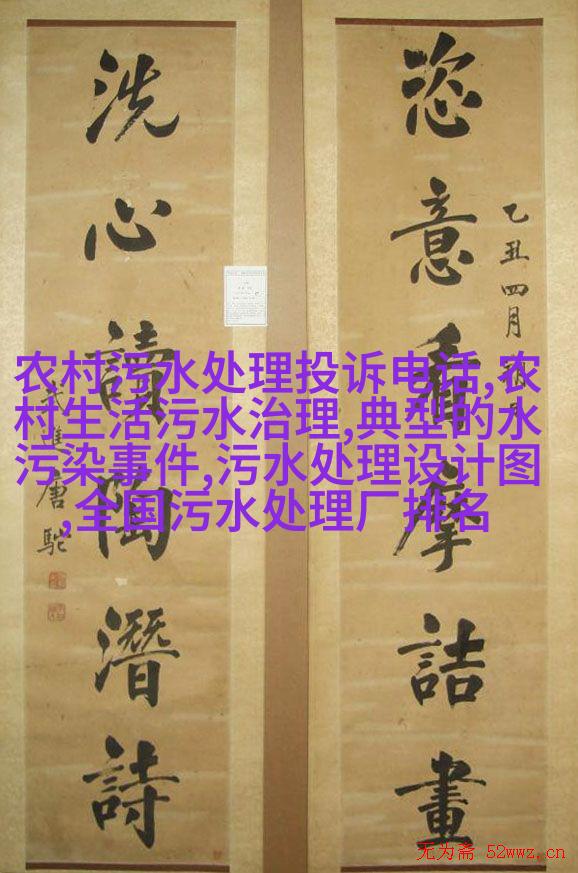 恣意看摩詰畫
乙丑四月
洗心讀陶潛詩
武進唐駝
农村污水处理投诉电话,农
村生活污水治理,典型的水
污染事件,污水处理设计图
,全国污水处理厂排名
无为斋 52wwz.cn